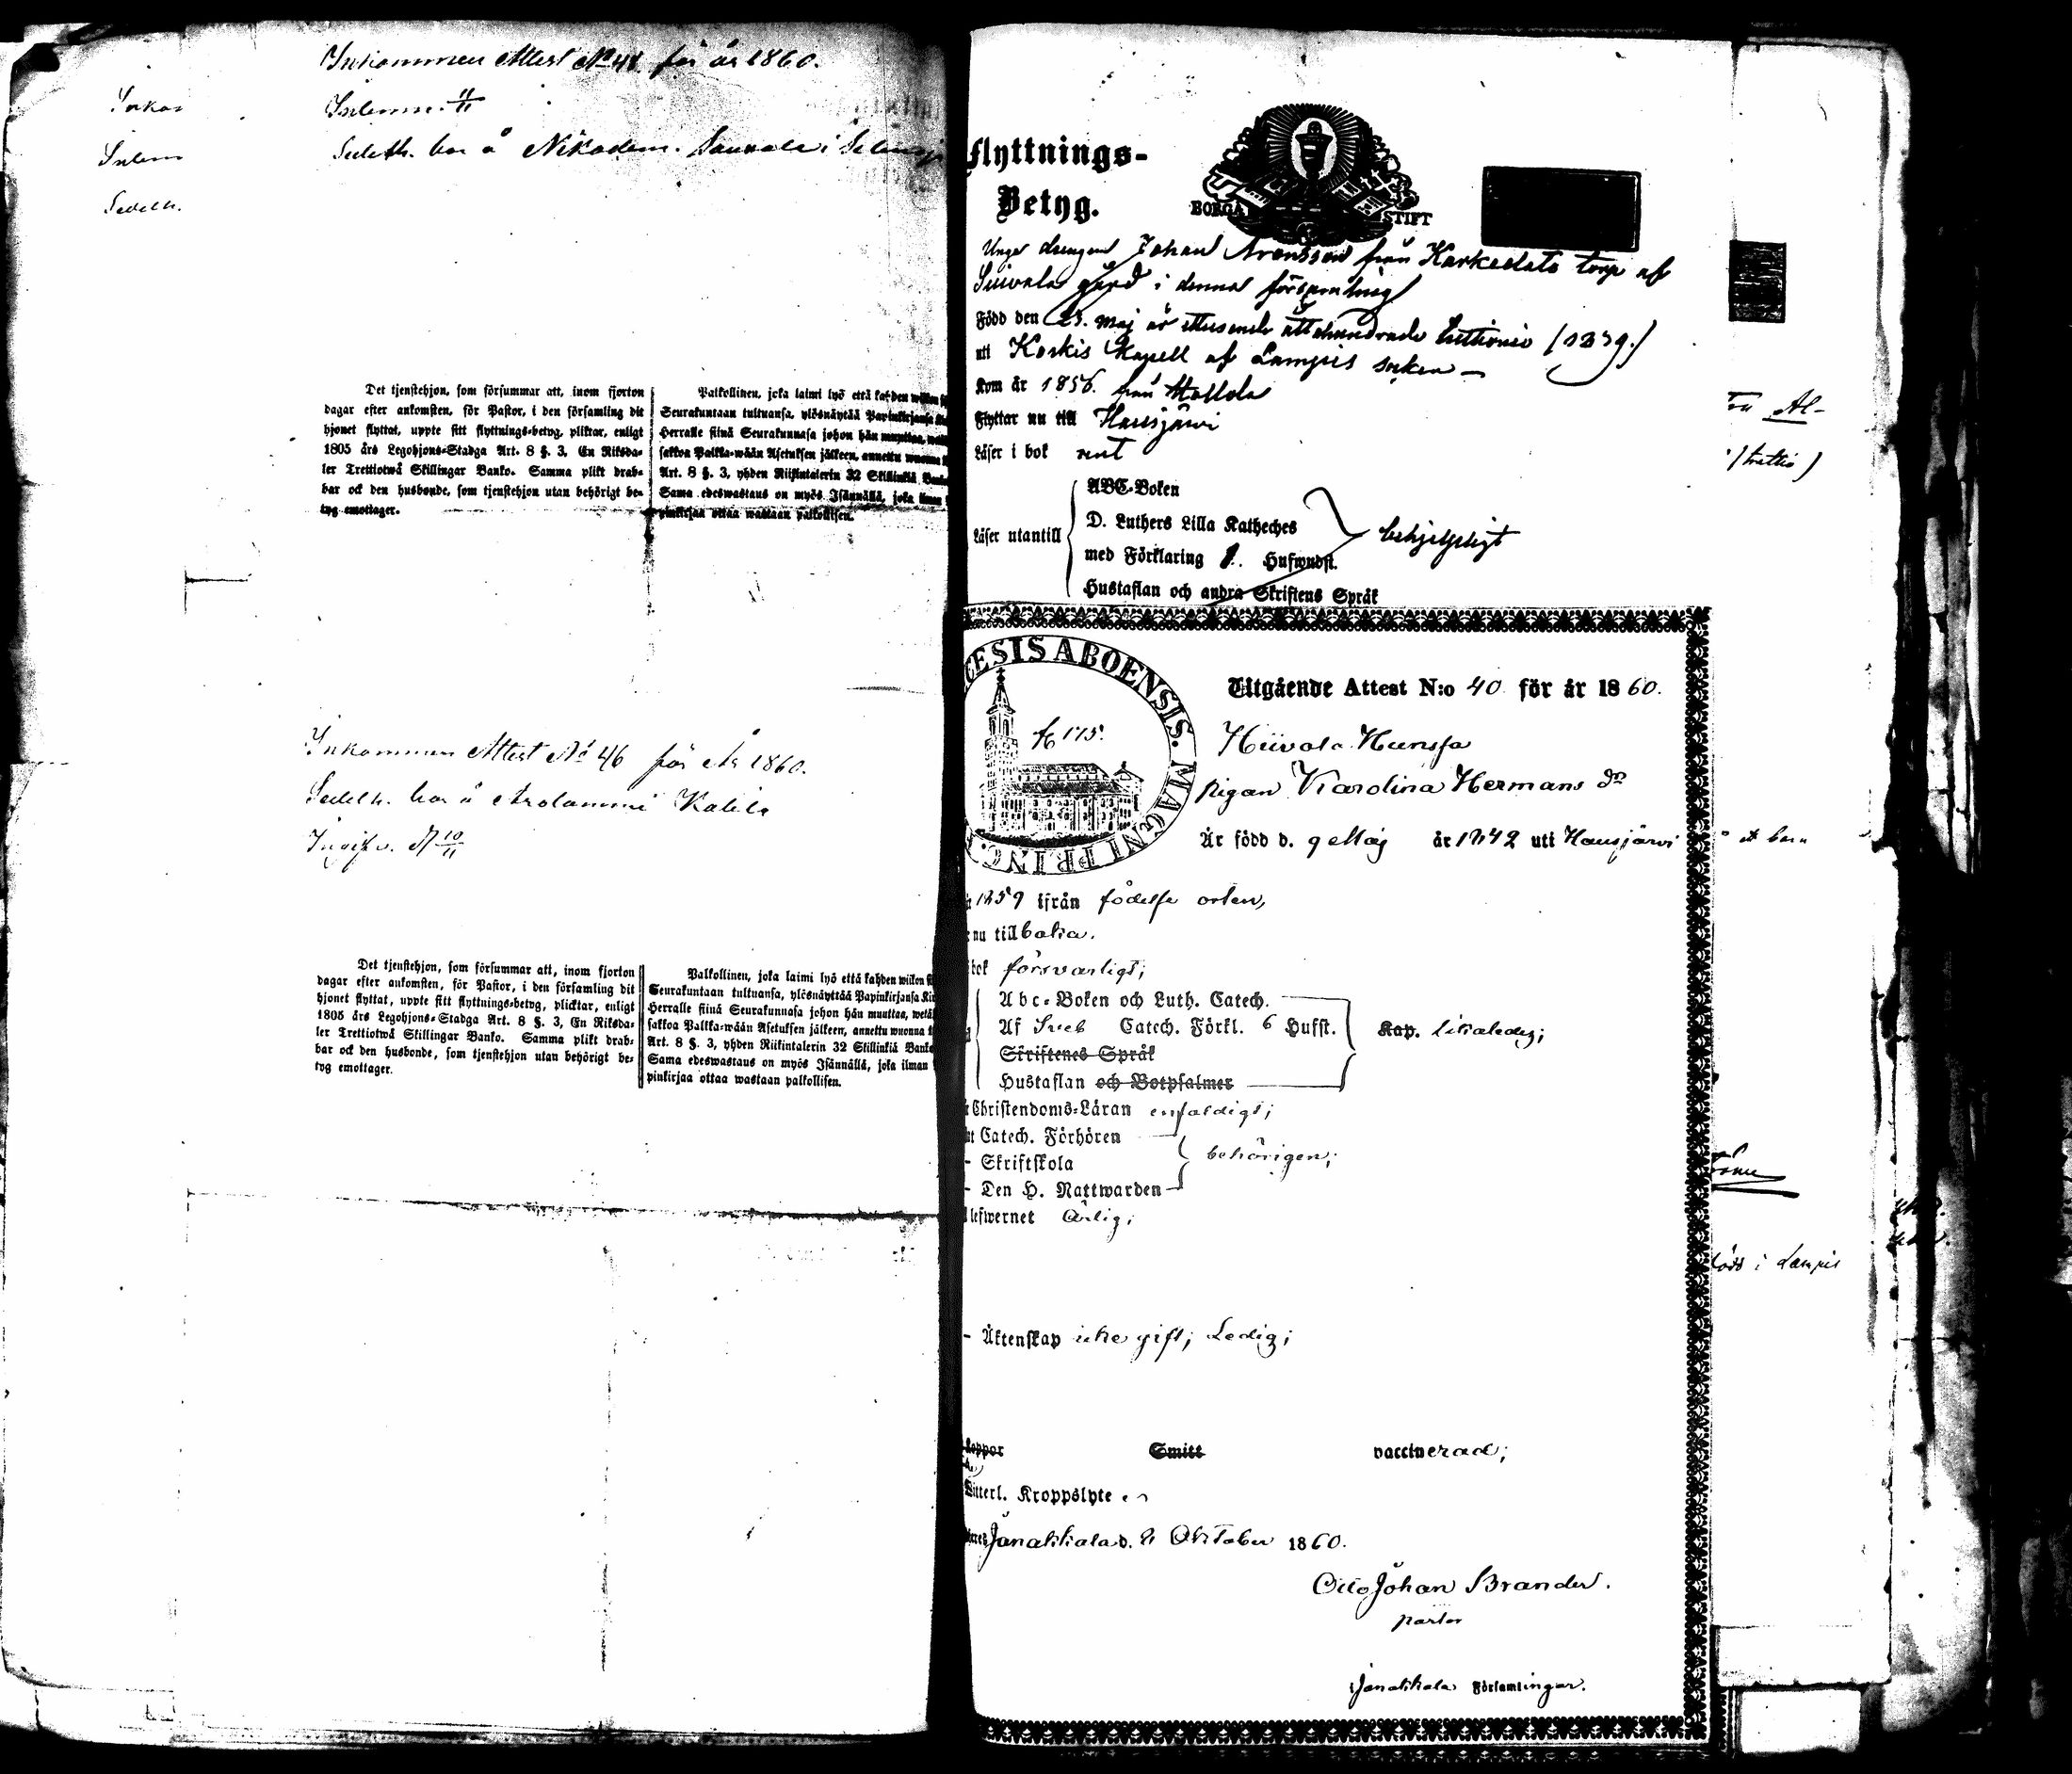 Inkommen Attest No 41 för år 1860.
Inlemn. 4/11
Sedelh. bor å Nikodem.
Inkom
Inlem
Sedelh.
Det tjenstehjon, som försummar att, inom fjorton
dagar efter ankomsten, för Pastor, i den församling dit
hjonet flyttat, uppte sitt flyttnings-betyg, pliktar, enligt
1805 års Legohjons-Stadga Art. 8 §. 3, En Riksda-
ler Trettiotwå Skillingar Banko. Samma plikt drab-
bar ock den husbonde, som tjenstehjon utan behörigt be-
tyg emottager.
Palkollinen, joka laimi lyö että kahden wiikon
Seurakuntaan tultuansa, ylösnäyttää Papinkirjansa
Herralle siinä Seurakunnasa johon hän muuttaa,
sakkoa Palkka-wään Asetuksen jälkeen, annettu wuonna
Art. 8 §. 3, yhden Riikintalerin 32 Skillinkiä Banko
Sama edeswastaus on myös Isännällä, joka ilman
pinkirjaa ottaa wastaan palkollisen.
Inkommen Attest No 46 för År 1860.
Sedelh. bor å Arolammi Kalila
Ingifv. d. 10/11
Det tjenstehjon, som försummar att, inom fjorton
dagar efter ankomsten, för Pastor, i den församling dit
hjonet flyttat, uppte sitt flyttnings-betyg, plicktar, enligt
1805 års Legohjons-Stadga Art. 8 §. 3, En Riksda-
ler Trettiotwå Skillingar Banko. Samma plikt drab-
bar ock den husbonde, som tjenstehjon utan behörigt be-
tyg emottager.
Palkollinen, joka laimi lyö että kahden wiikon
Seurakuntaan tultuansa, ylösnäyttää Papinkirjansa
Herralle siinä Seurakunnasa johon hän muuttaa,
sakkoa Palkka-wään Asetuksen jälkeen, annettu wuonna
Art. 8 §. 3, yhden Riikintalerin 32 Skillinkiä Banko
Sama edeswastaus on myös Isännällä, joka ilman
pinkirjaa ottaa wastaan palkollisen.
Flyttnings-
Betyg.
BORGÅ STIFT
Unge drengen Johan Aronsson från Karkedats torp af
gård i denna församling
Född den 23. maj år ettusende åttahundrade trettionio (1839.)
uti Koskis Kapell af Lampis socken
Kom år 1856. från Mallola
Flyttar nu till Hausjärvi
Läser i bok rent
Läser utantill
ABC-Boken
D. Luthers Lilla Katheches
med Förklaring 1. Hufwudst.
Hustaflan och andra Skriftens Språk
behjelpligt
CESIS ABOENSIS. MAGNI PRINC.
fc 175.
Utgående Attest N:o 40 för år 1860.
Hiivola Hunsja
pigan Karolina Hermans dr
Är född d. 9 Maj år 1842 uti Hausjärvi
1859 ifrån födelse orten,
nu tillbaka.
bok försvarligt;
Abc-Boken och Luth. Catech.
Af Sveb Catech. Förkl. 6 Hufst.
Skriftenes Språk
Hustaflan och Botpsalmer
Kap. likaledes;
Christendoms-Läran enfaldigt;
Catech. Förhören
- Skriftskola
- Den H. Nattwarden
behörigen;
lefwernet Ärlig;
- Äktenskap icke gift; Ledig;
koppor Smitt vaccinerad;
Witterl. Kroppslyte
Janakkala d. 2 Oktober 1860.
Otto Johan Brander.
pastor
Janakkala Församlingar.
Al-
(trettio)
ett barn
i Lampis